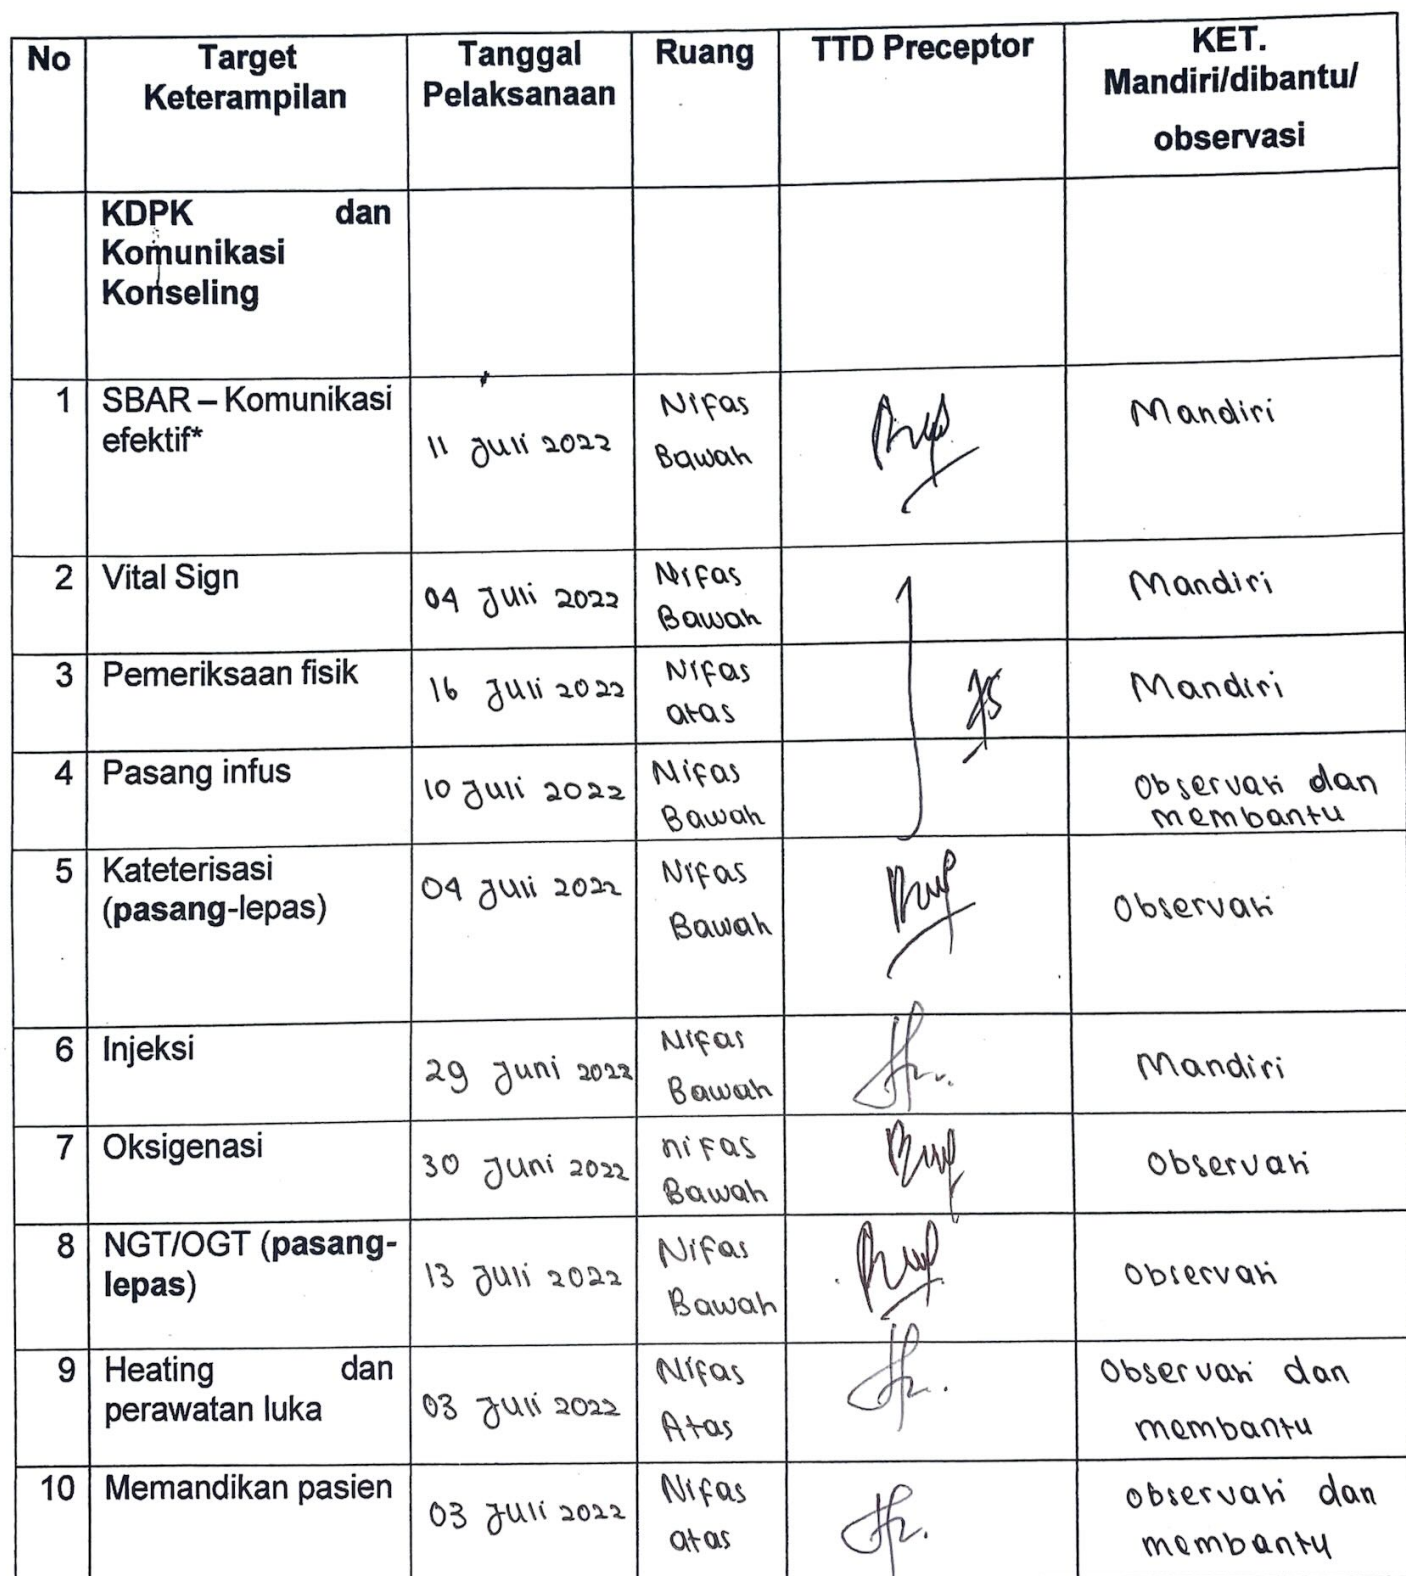 No
Target
Keterampilan
Tanggal
Pelaksanaan
Ruang
TTD Preceptor
KET.
Mandiri/dibantu/
observasi
KDPK dan
Komunikasi
Konseling
1
SBAR – Komunikasi
efektif*
11 Juli 2022
Nifas
Bawah
Mandiri
2
Vital Sign
04 Juli 2022
Nifas
Bawah
Mandiri
3
Pemeriksaan fisik
16 Juli 2022
Nifas
atas
Mandiri
4
Pasang infus
10 Juli 2022
Nifas
Bawah
Observasi dan
membantu
5
Kateterisasi
(pasang-lepas)
04 Juli 2022
Nifas
Bawah
Observasi
6
Injeksi
29 Juni 2022
Nifas
Bawah
Mandiri
7
Oksigenasi
30 Juni 2022
nifas
Bawah
Observasi
8
NGT/OGT (pasang-
lepas)
13 Juli 2022
Nifas
Bawah
Observasi
9
Heating dan
perawatan luka
03 Juli 2022
Nifas
Atas
Observasi dan
membantu
10
Memandikan pasien
03 Juli 2022
Nifas
atas
observasi dan
membantu